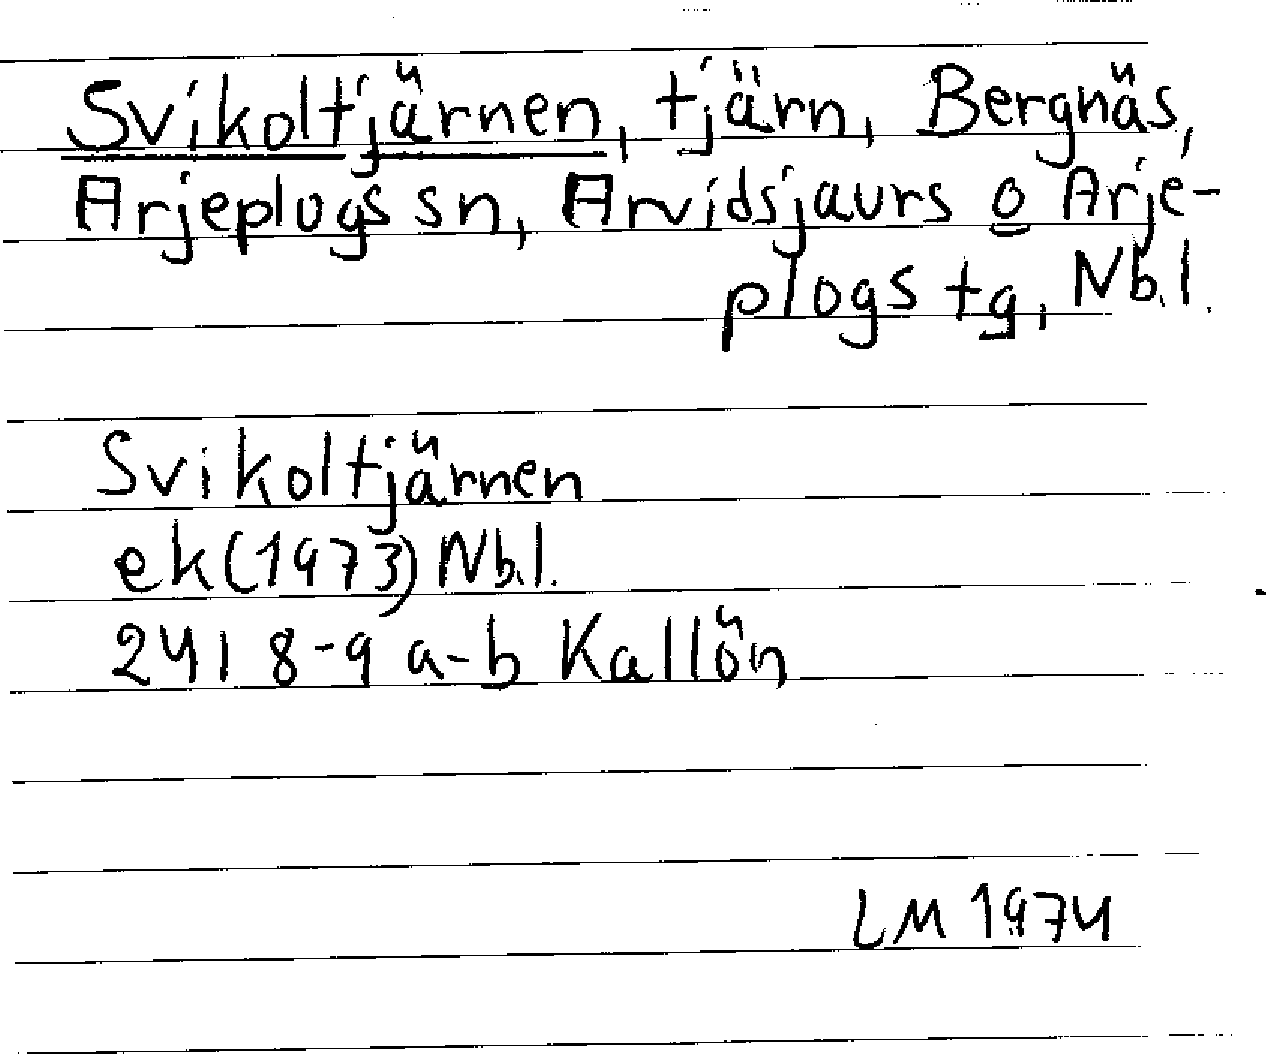 Svikoltjärnen, tjärn, Bergnäs,
Arjeplogs sn, Arvidsjaurs o Arje-
plogs tg, Nb.l.
Svikoltjärnen
ek (1973) Nb.l.
241 8-9 a-b Kallön
LM 1974